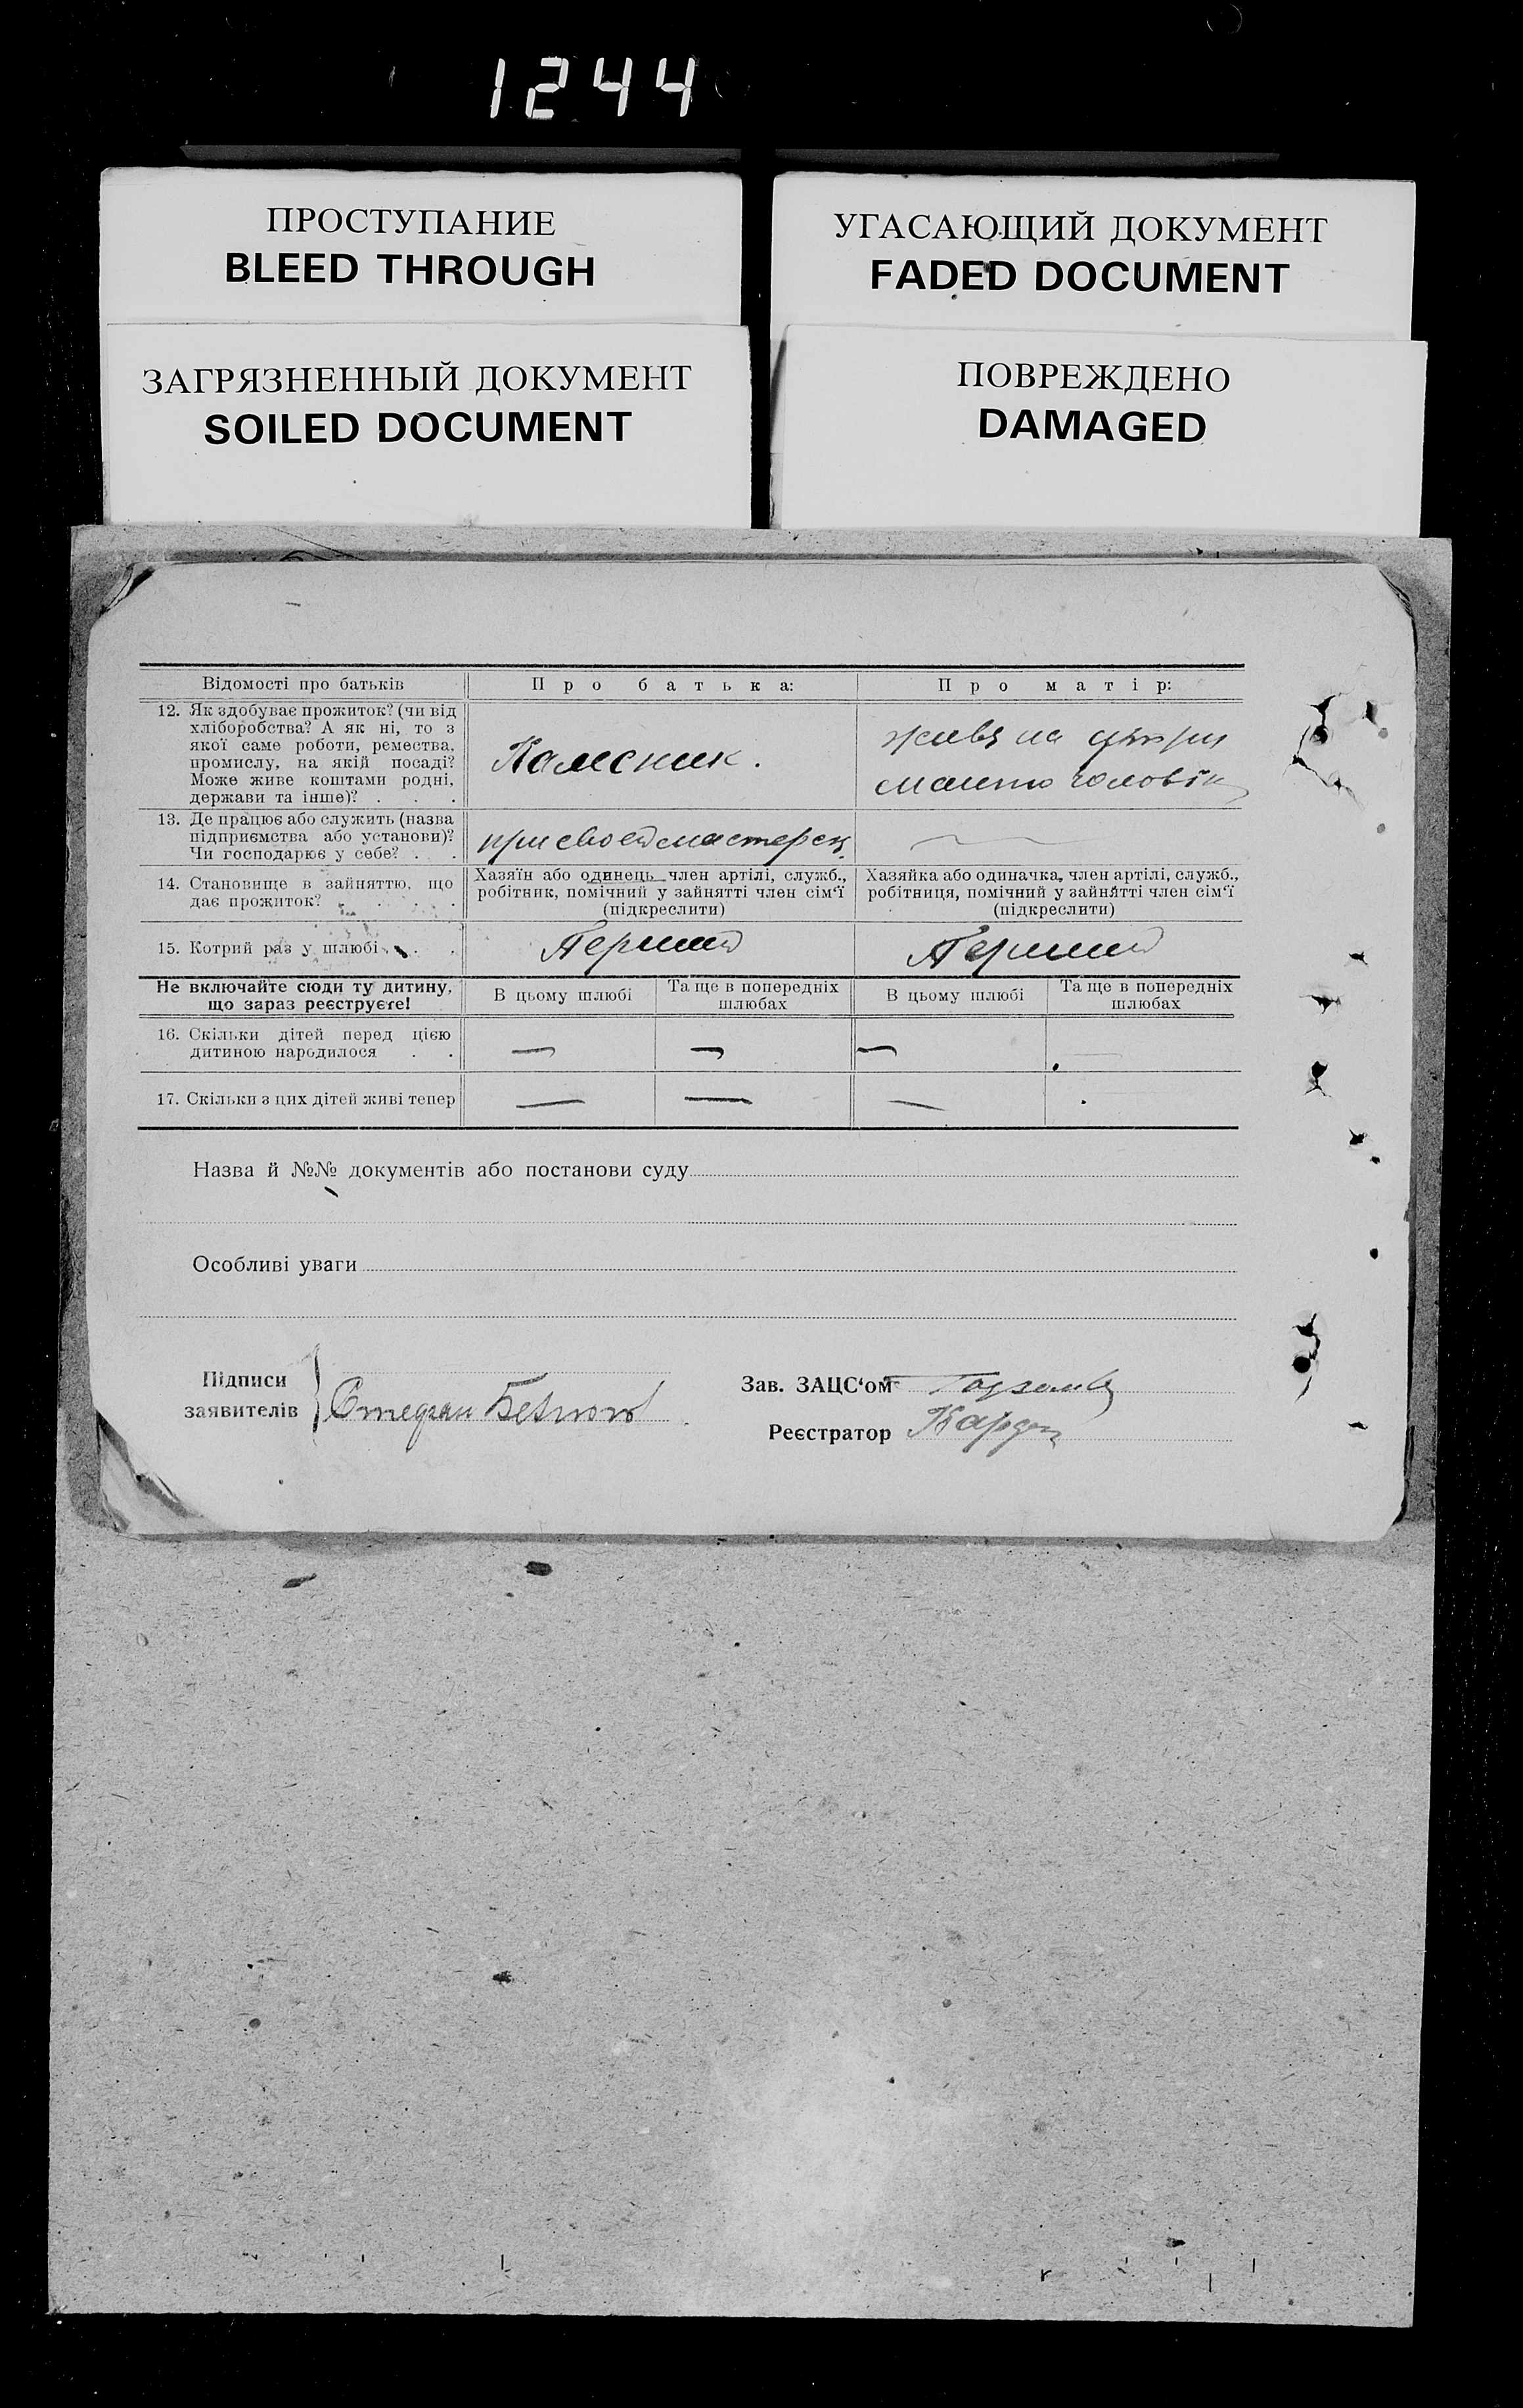 1244
ПРОСТУПАНИЕ
BLEED THROUGH
УГАСАЮЩИЙ ДОКУМЕНТ
FADED DOCUMENT
ЗАГРЯЗНЕННЫЙ ДОКУМЕНТ
SOILED DOCUMENT
ПОВРЕЖДЕНО
DAMAGED
Відомості про батьків
Про батька:
Про матір:
12. Як здобуває прожиток? (чи від
хліборобства? А як ні, то з
якої саме роботи, ремества,
промислу, на якій посаді?
Може живе коштами родні,
держави та інше)? . . .
Колесник.
живе на
чоловік
13. Де працює або служить (назва
підприємства або установи)?
Чи господарює у себе? . .
при своей мастерск.
14. Становище в зайняттю, що
дає прожиток? . . . .
Хазяїн або одинець член артілі, служб.,
робітник, помічний у зайнятті член сім‘ї
(підкреслити)
Хазяйка або одиначка, член артілі, служб.,
робітниця, помічний у зайнятті член сім‘ї
(підкреслити)
15. Котрий раз у шлюбі . . .
Перший
Перший
Не включайте сюди ту дитину,
що зараз реєструєте!
В цьому шлюбі
Та ще в попередніх
шлюбах
В цьому шлюбі
Та ще в попередніх
шлюбах
16. Скільки дітей перед цією
дитиною народилося . .
— — —
17. Скільки з цих дітей живі тепер
— — —
Назва й №№ документів або постанови суду
Особливі уваги
Підписи
заявителів
Стефан
Зав. ЗАЦС‘ом
Реєстратор